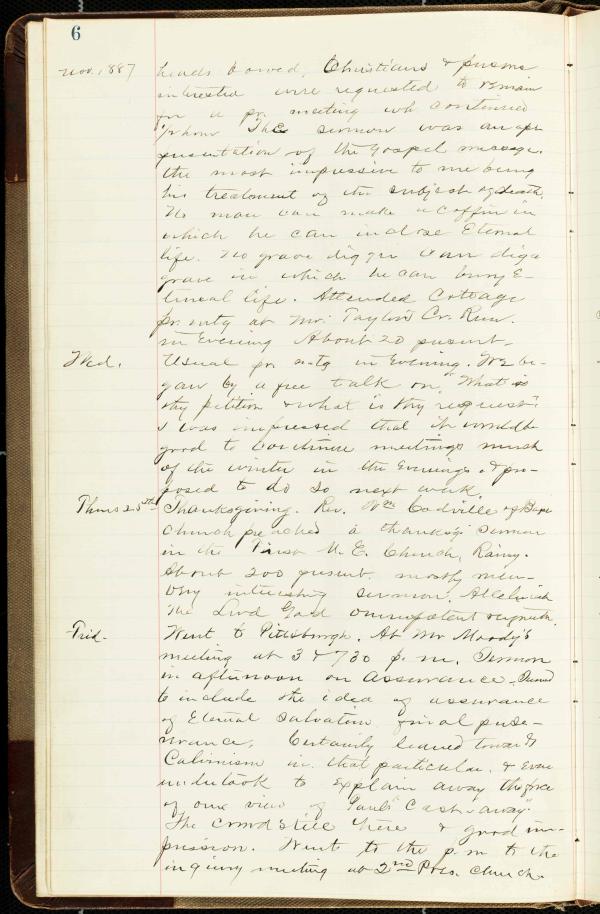 6
Nov. 1887 heads bowed, Christians & persons
interested were requested to remain
for a pr. meeting wh continued
The sermon was an
presentation of the Gospel message.
the most impressive to me being
his treatment of the subject of death.
No man can make a coffin in
which he can inclose Eternal
life. No grave digger can dig a
grave in which he can bury E-
ternal life. Attended Cottage
pr. mtg at Mr. Taylor's Cr. Run.
in Evening About 20 present.
Wed. Usual pr. mtg in Evening. We be-
gan by a free talk on, "What is
thy petition & what is thy request"
I was impressed that it would be
good to continue meetings much
of the winter in the Evenings. & pro-
posed to do so next week.
Thurs 25th Thanksgiving. Rev. Wm Codville of Bapt
Church preached a thanksg. sermon
in the First M. E. Church, Rainy.
About 200 present. mostly men-
Very interesting sermon. Alleluia
The Lord God omnipotent reigneth.
Frid. Went to Pittsburgh. At Mr Moody's
meeting at 3 & 730 p. m. Sermon
in afternoon on assurance. Seemed
to include the idea of assurance
of Eternal salvation, final perse-
verance, Certainly leaned towards
Calvinism in that particular. & even
undertook to explain away the force
of our view of Paul's "Cast-away."
The crowd still there & good im-
pression. Went to the p.m to the
inquiry meeting at 2nd Pres. Church.